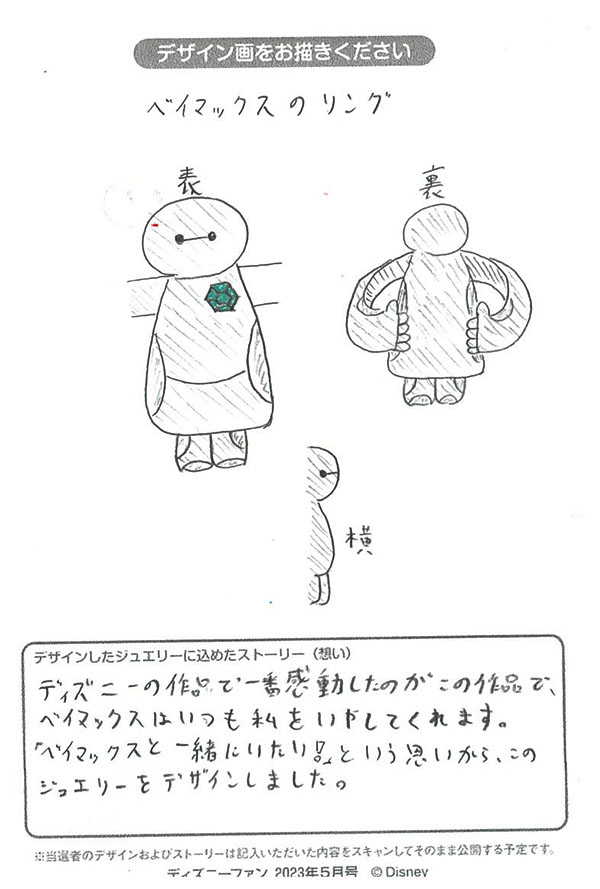 デザイン画をお描きください
ベイマックスのリング
表
裏
横
デザインしたジュエリーに込めたストーリー(想い)
ディズニーの作品で一番感動したのがこの作品で、
ベイマックスはいつも私をいやしてくれます。
「ベイマックスと一緒にいたい!!」という思いから、この
ジュエリーをデザインしました。
※当選者のデザインおよびストーリーは記入いただいた内容をスキャンしてそのまま公開する予定です。
ディズニーファン 2023年5月号 ©Disney